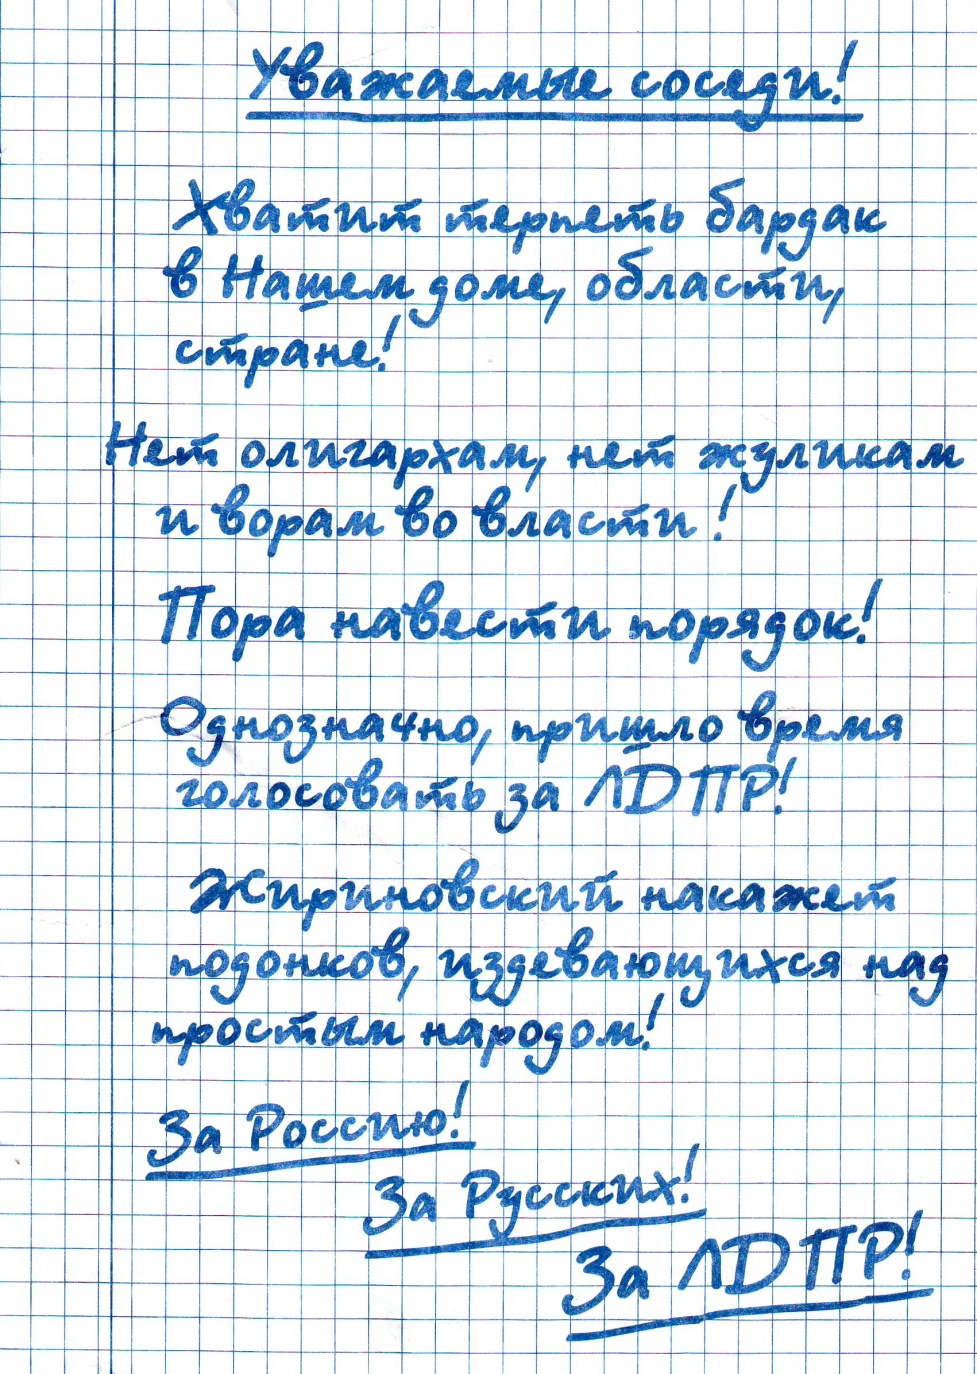 Уважаемые соседи!
Хватит терпеть бардак
в Нашем доме, области,
стране!
Нет олигархам, нет жуликам
и ворам во власти!
Пора навести порядок!
Однозначно, пришло время
голосовать за ЛДПР!
Жириновский накажет
подонков, издевающихся над
простым народом!
За Россию!
За Русских!
За ЛДПР!